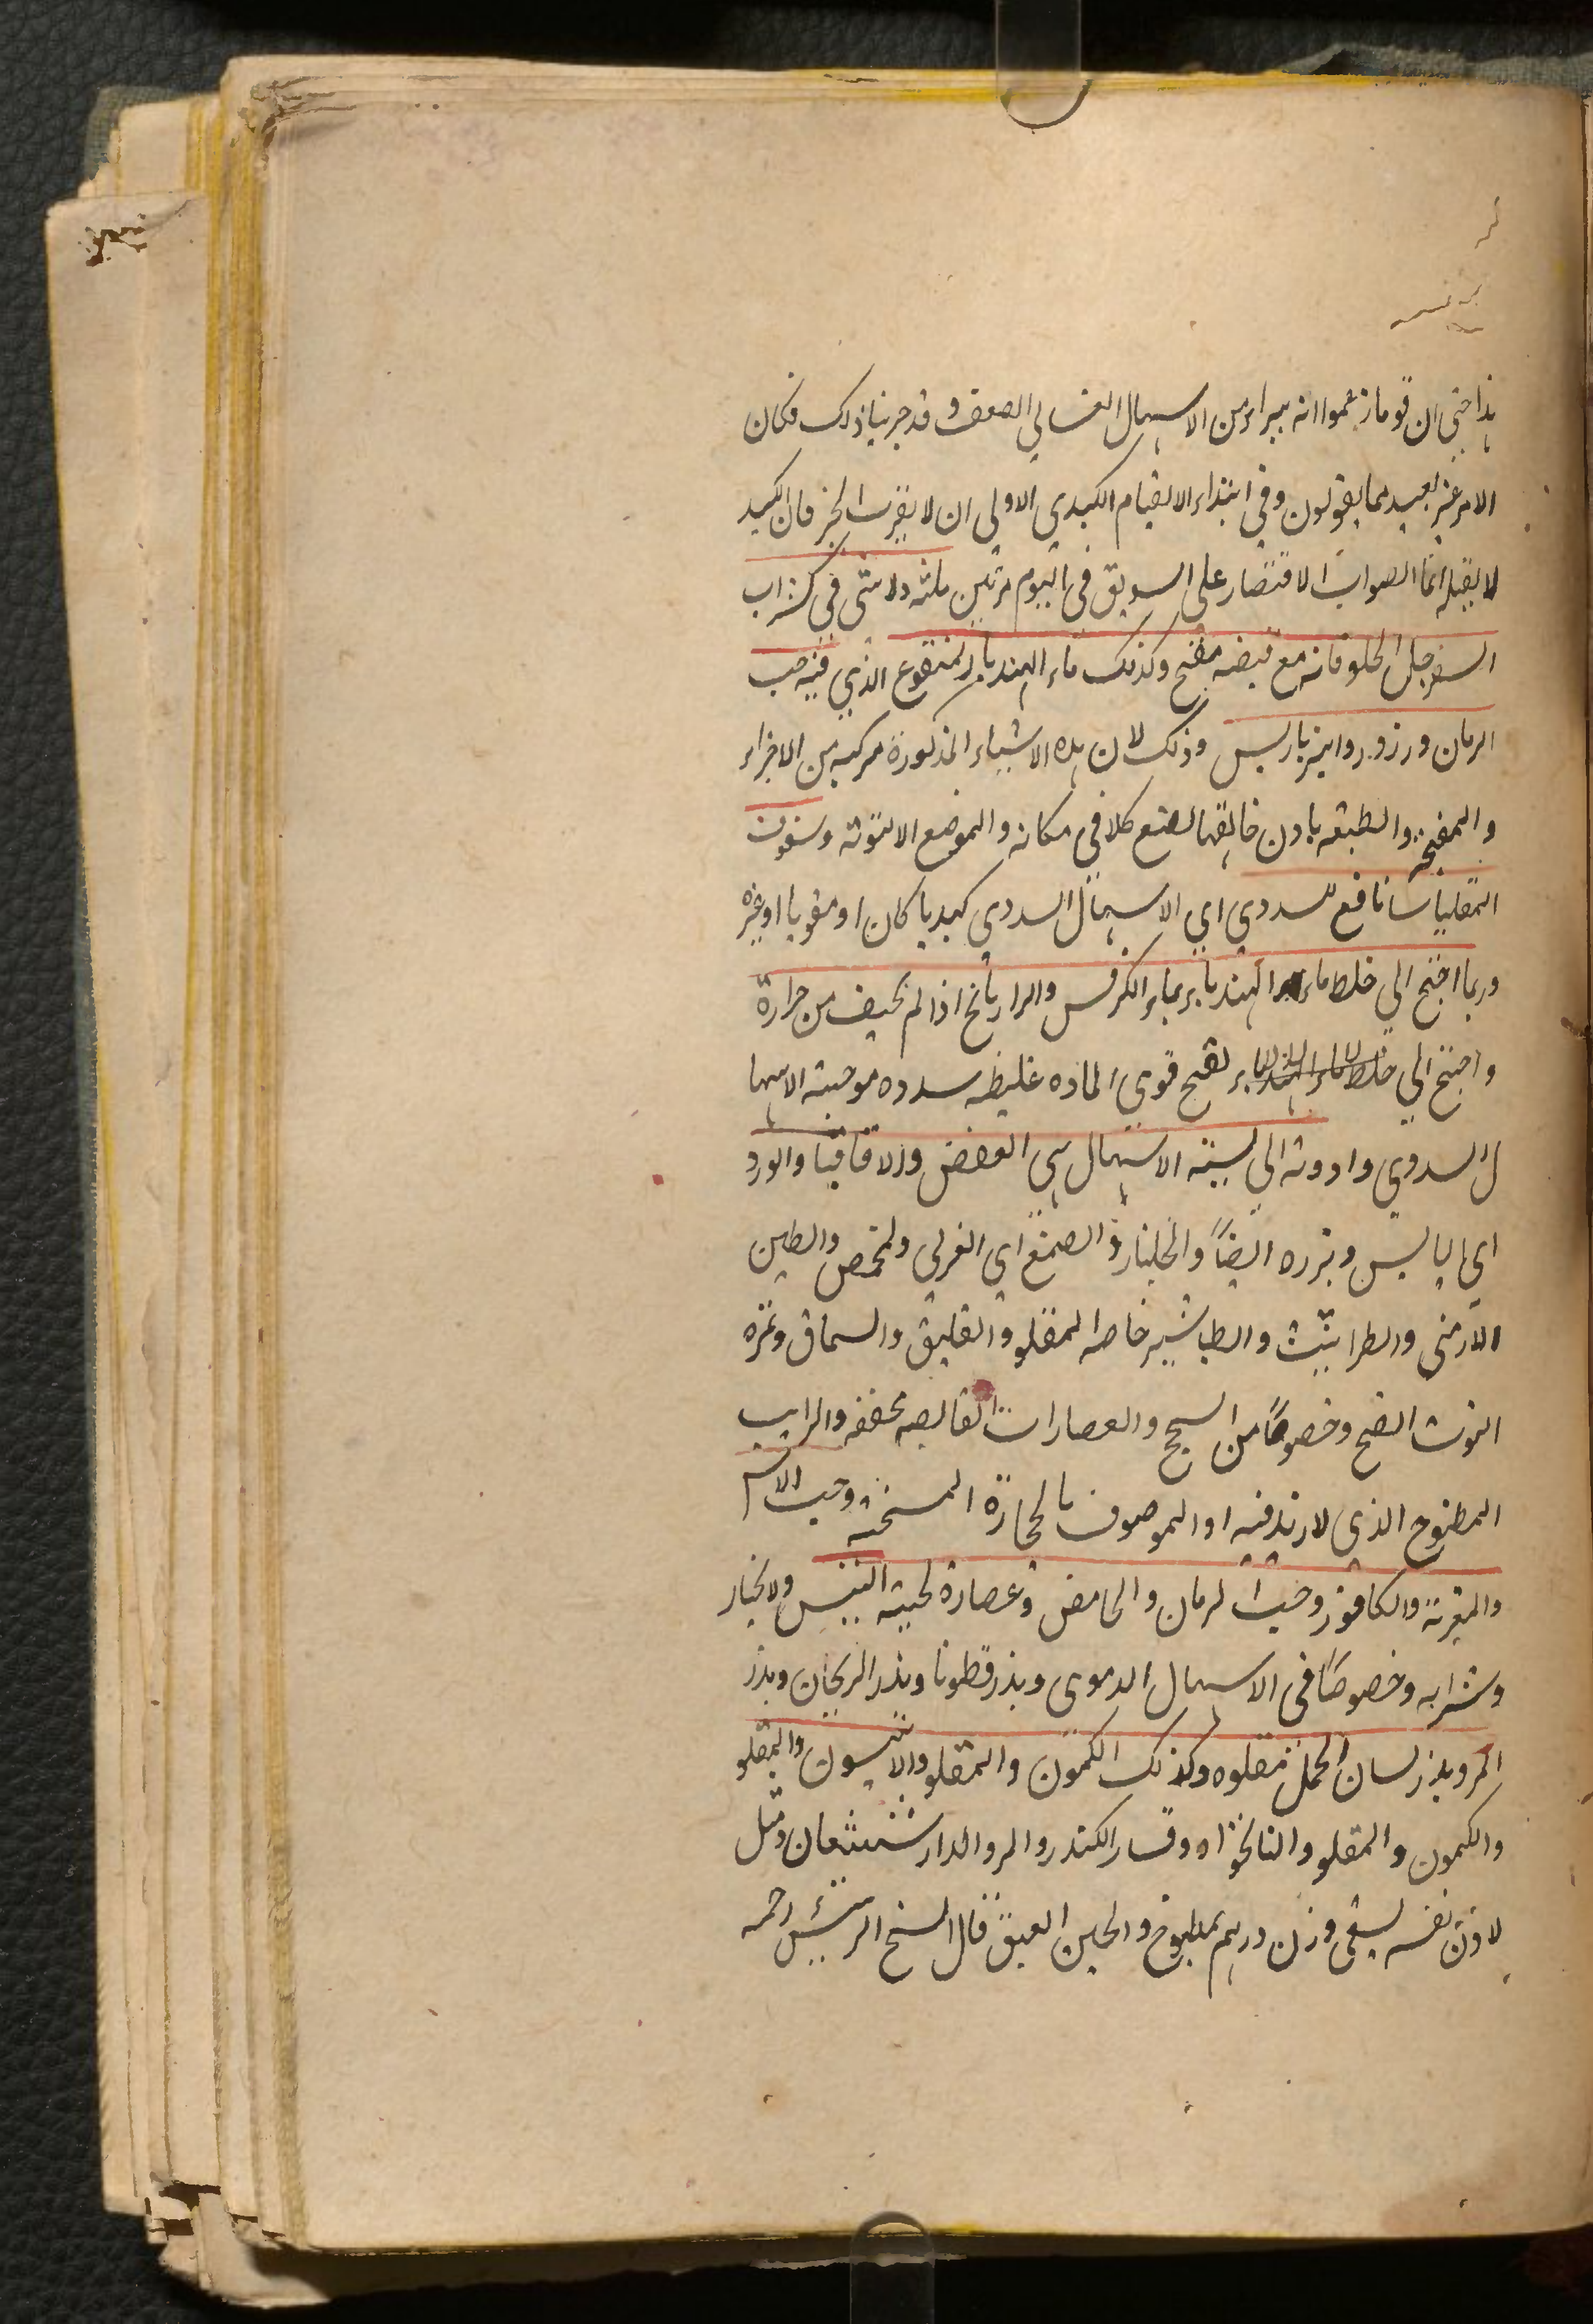 هذا حتى ان قوما زعموا انه يبراء من الاسهال الغسالي الصعف و قد جربنا ذلك فكان
الامر غير بعيد مما يقولون وفي ابتداء الالقيام الكبدي الاولى ان لا يقرب الخبز فان الكبد
لا يقبله انما الصواب الاقتصار على السويق في اليوم مرتين ثلثه ولا سيما في شراب
السفرجل الحلو فانه مع قبضه مفتح وكذلك ماء الهندباء المنقوع الذي فيه حب
الرمان ورزورد وانبرباريس وذلك لان هذه الاشياء المذكورة مركبه من الاجزاء
والمفتحة والطبيعه باذن خالقها تصنع كلا في مكانه والموضع الا وسفوف
المقلياثا نافع للسددي اي الاسهال السددي كبديا كان او معويا او غيره
وربما احتيج الى خلط ماء الهندباء بماء الكرفس والرازيانج اذا لم يخيف من حرارة
واحتيج الى خلط ماء الهندباء تفتح قوي الماده غليظه سدده موجبة الاسها
ل السددي وادوته الى الاسهال هي العفص والاقاقيا والورد
اي اليابس وبزره ايضاً والجلنار والصمغ اي العربي والحمص والطين
الارمنى والطراثيث والطباشير خاصه المقلو والعليق والسماق وثمره
التوث الفج وخصوصاً من السحج والعصارات القابضه مجففه والرايب
المطبوخ الذي لا زبد فيه او الموصوف بالحجارة المسخنه وحب الاس
والمغرة والكافور وحب الرمان والحامض وعصارة لحية التيس والاخبار
وشرابه وخصوصاً في الاسهال الدموي وبذر قطونا وبذر الريحان وبذر
المرو بذر لسان الحمل مقلوه وكذلك الكمون والمقلو والانيسون والمقلو
والكمون والمقلو والنانخواه وقسار الكندر والمر والدارشيشعان ومثل
لاذن نفسه يسقى وزن درهم بمطبوخ والجبن العيق قال الشيخ الرئيس رحمه